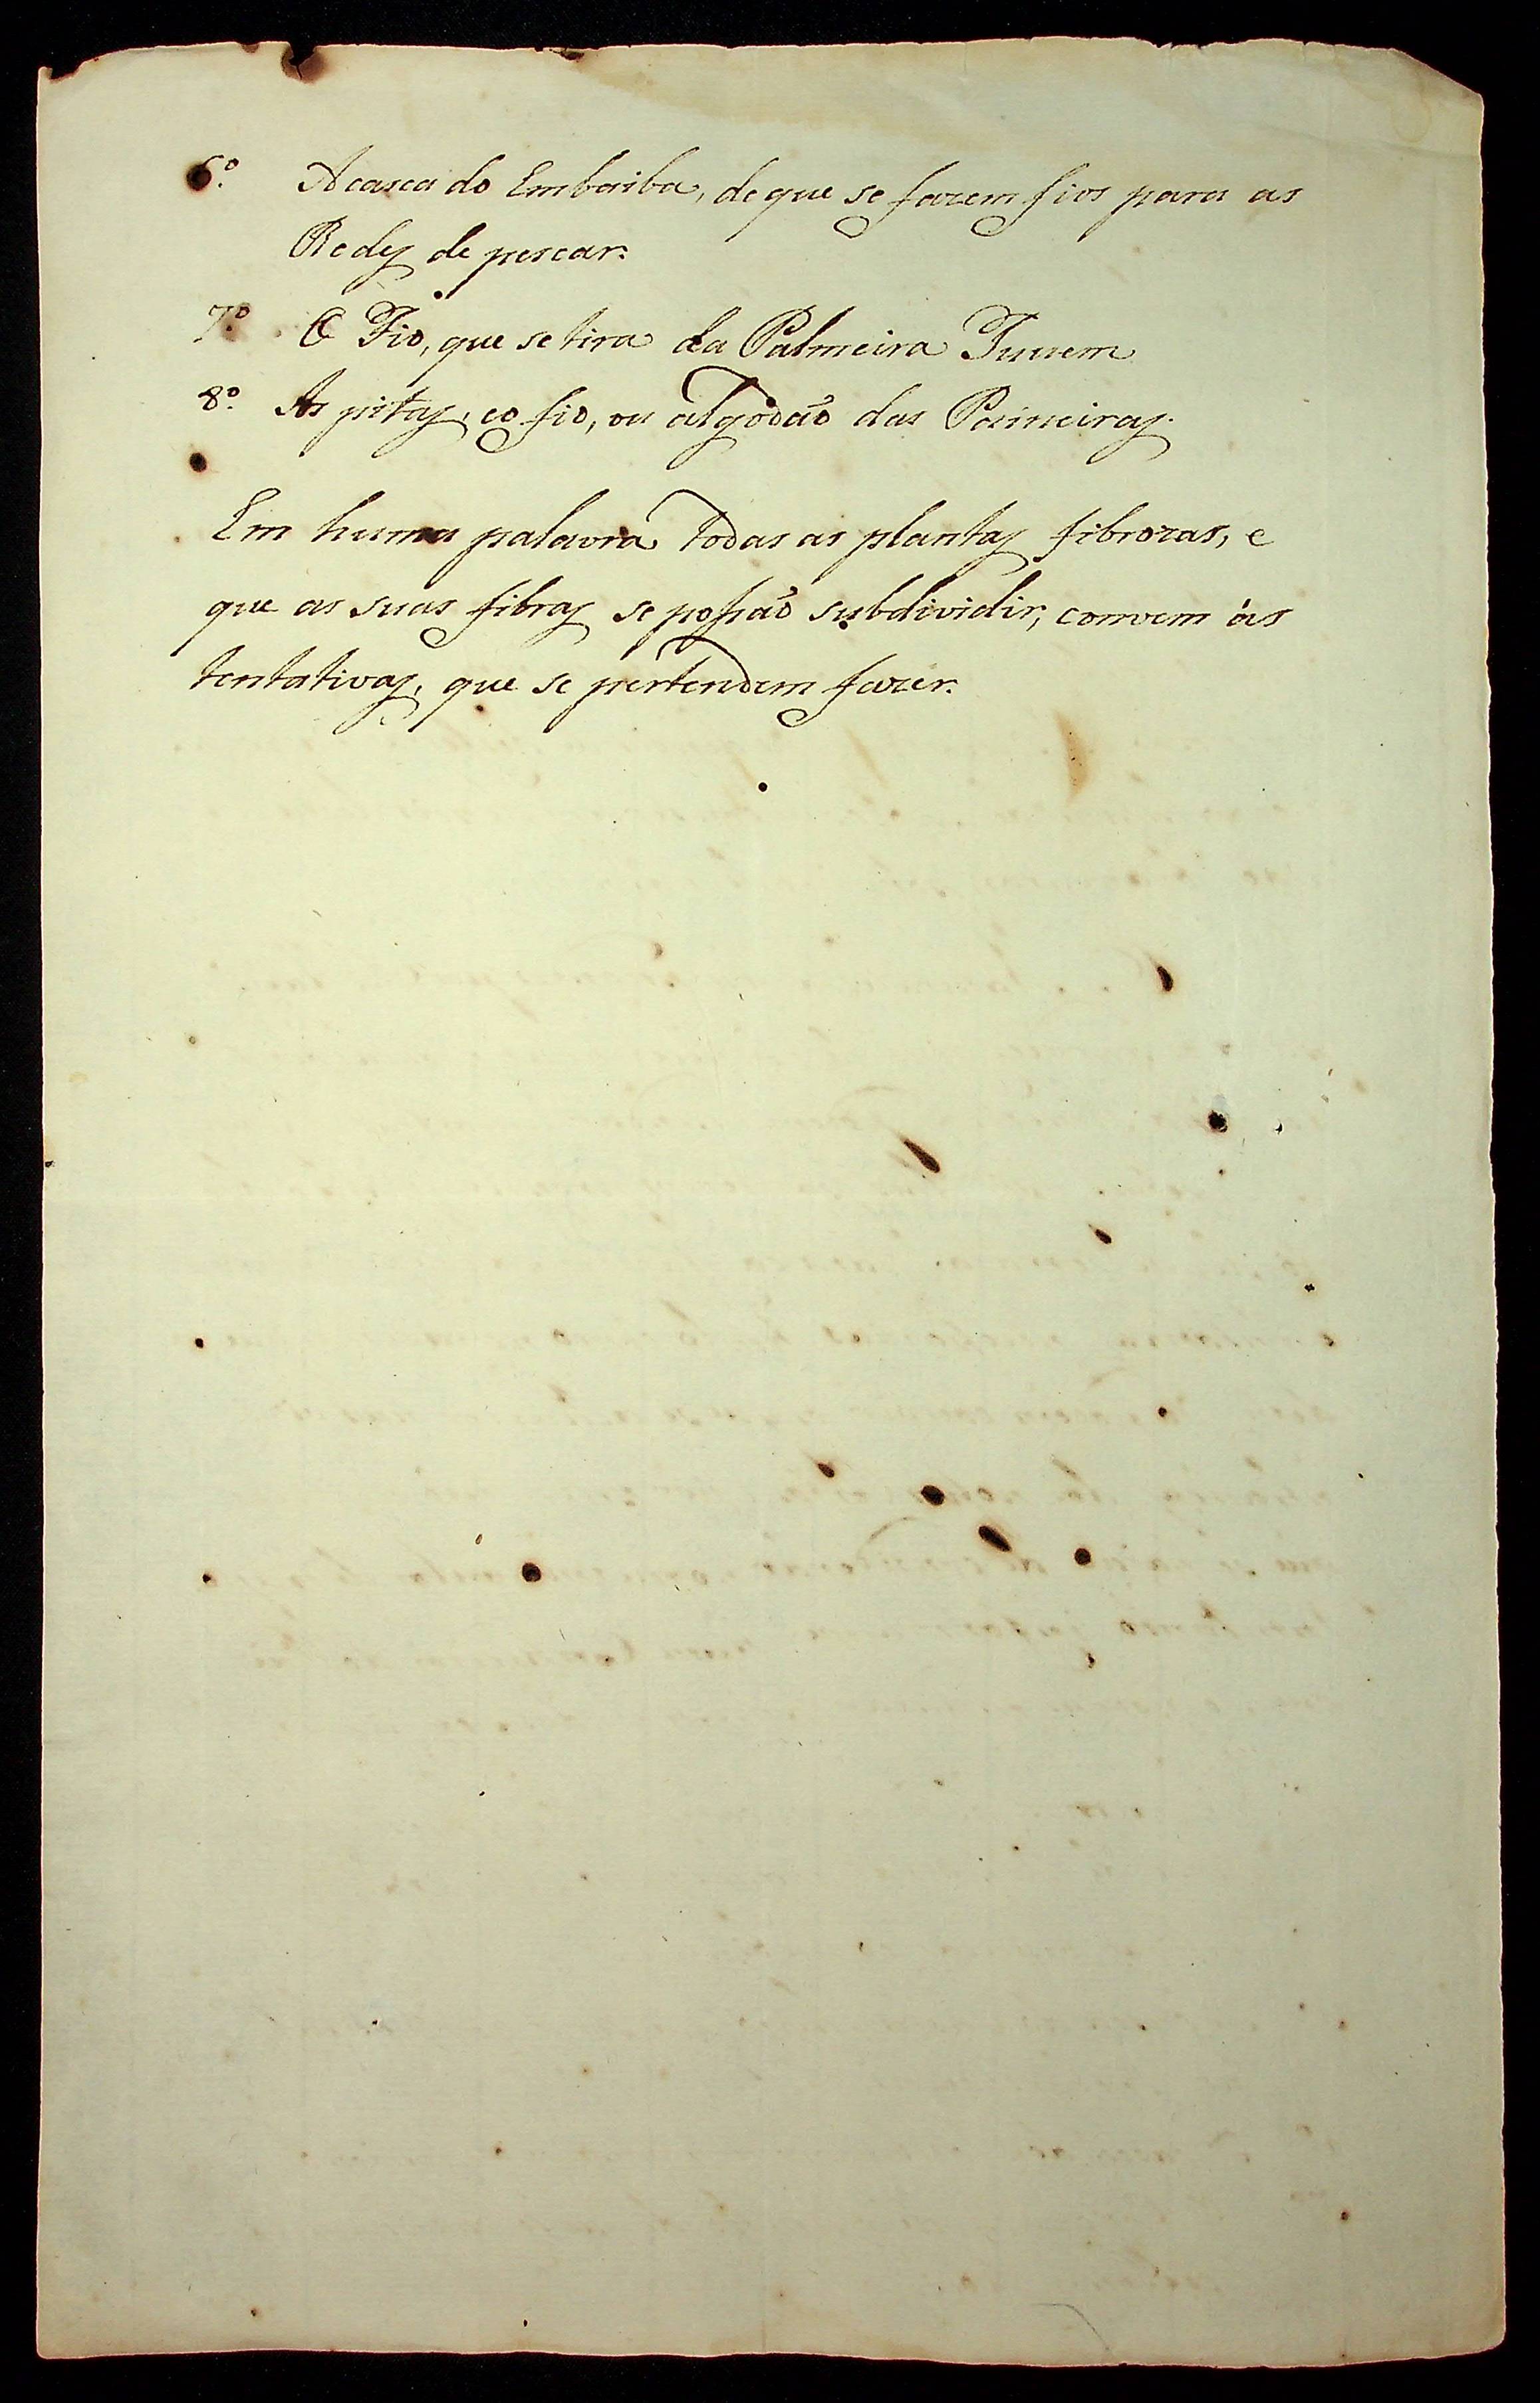 6.º A casca do Embaiba, de que se fazem fios para as
Redes de pescar.
7.º O Fio, que se tira da Palmeira Tucum
8.º As pitas, e o fio, ou algodaõ das Paineiras.
Em huma palavra todas as plantas fibrozas, e
que as suas fibras se possaõ subdividir, convem ás
tentativas, que se pertendem fazer.